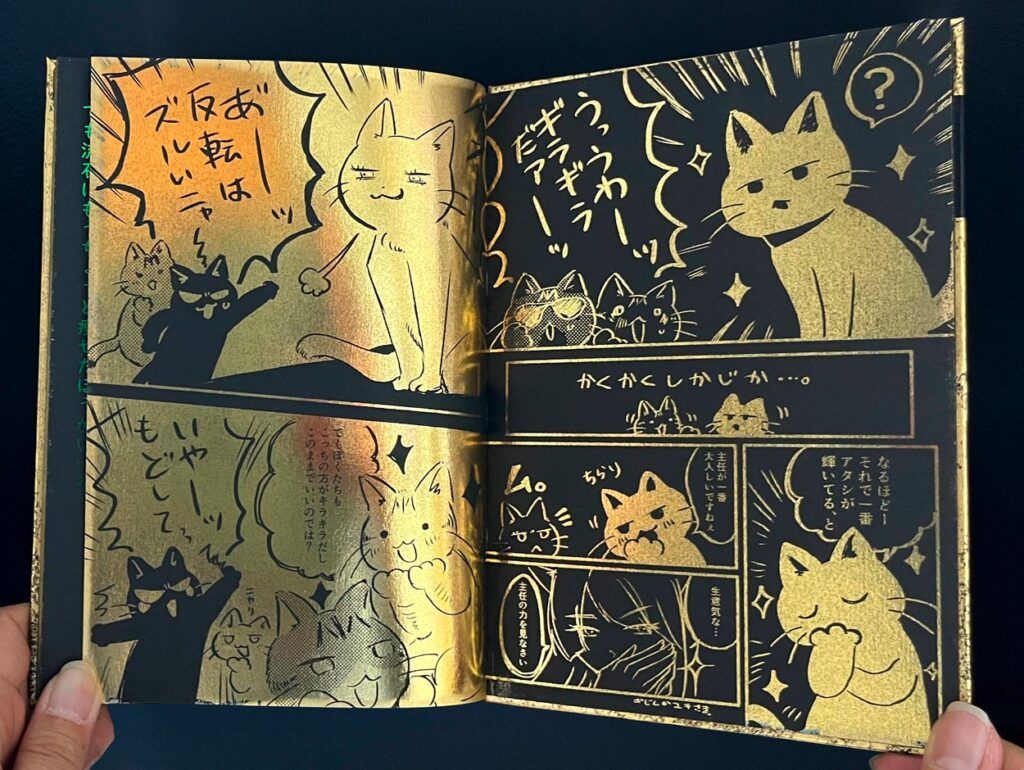 うっうわーッ
ギラギラ
だァーッ
?
かくかくしかじか…。
主任が一番
大人しいですねぇ
ちらり
ム。
生意気な…
主任の力を見なさい
なるほどー
それで一番
アタシが
輝いてる、と
あーッ
反転は
ズルいニャ
でもぼくたちも
こっちの方がキラキラだし
このままでいいのでは?
ニヤリ
いやーッ
もどしてっ